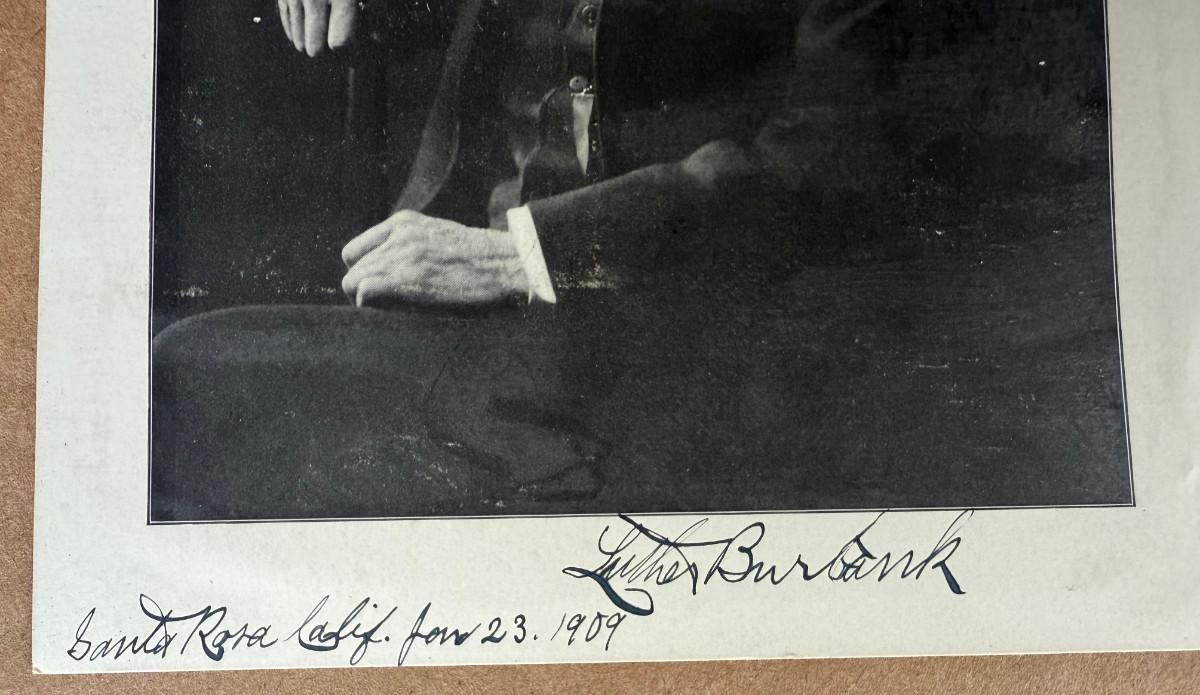 Luther Burbank
Santa Rosa Calif. Jan 23. 1909